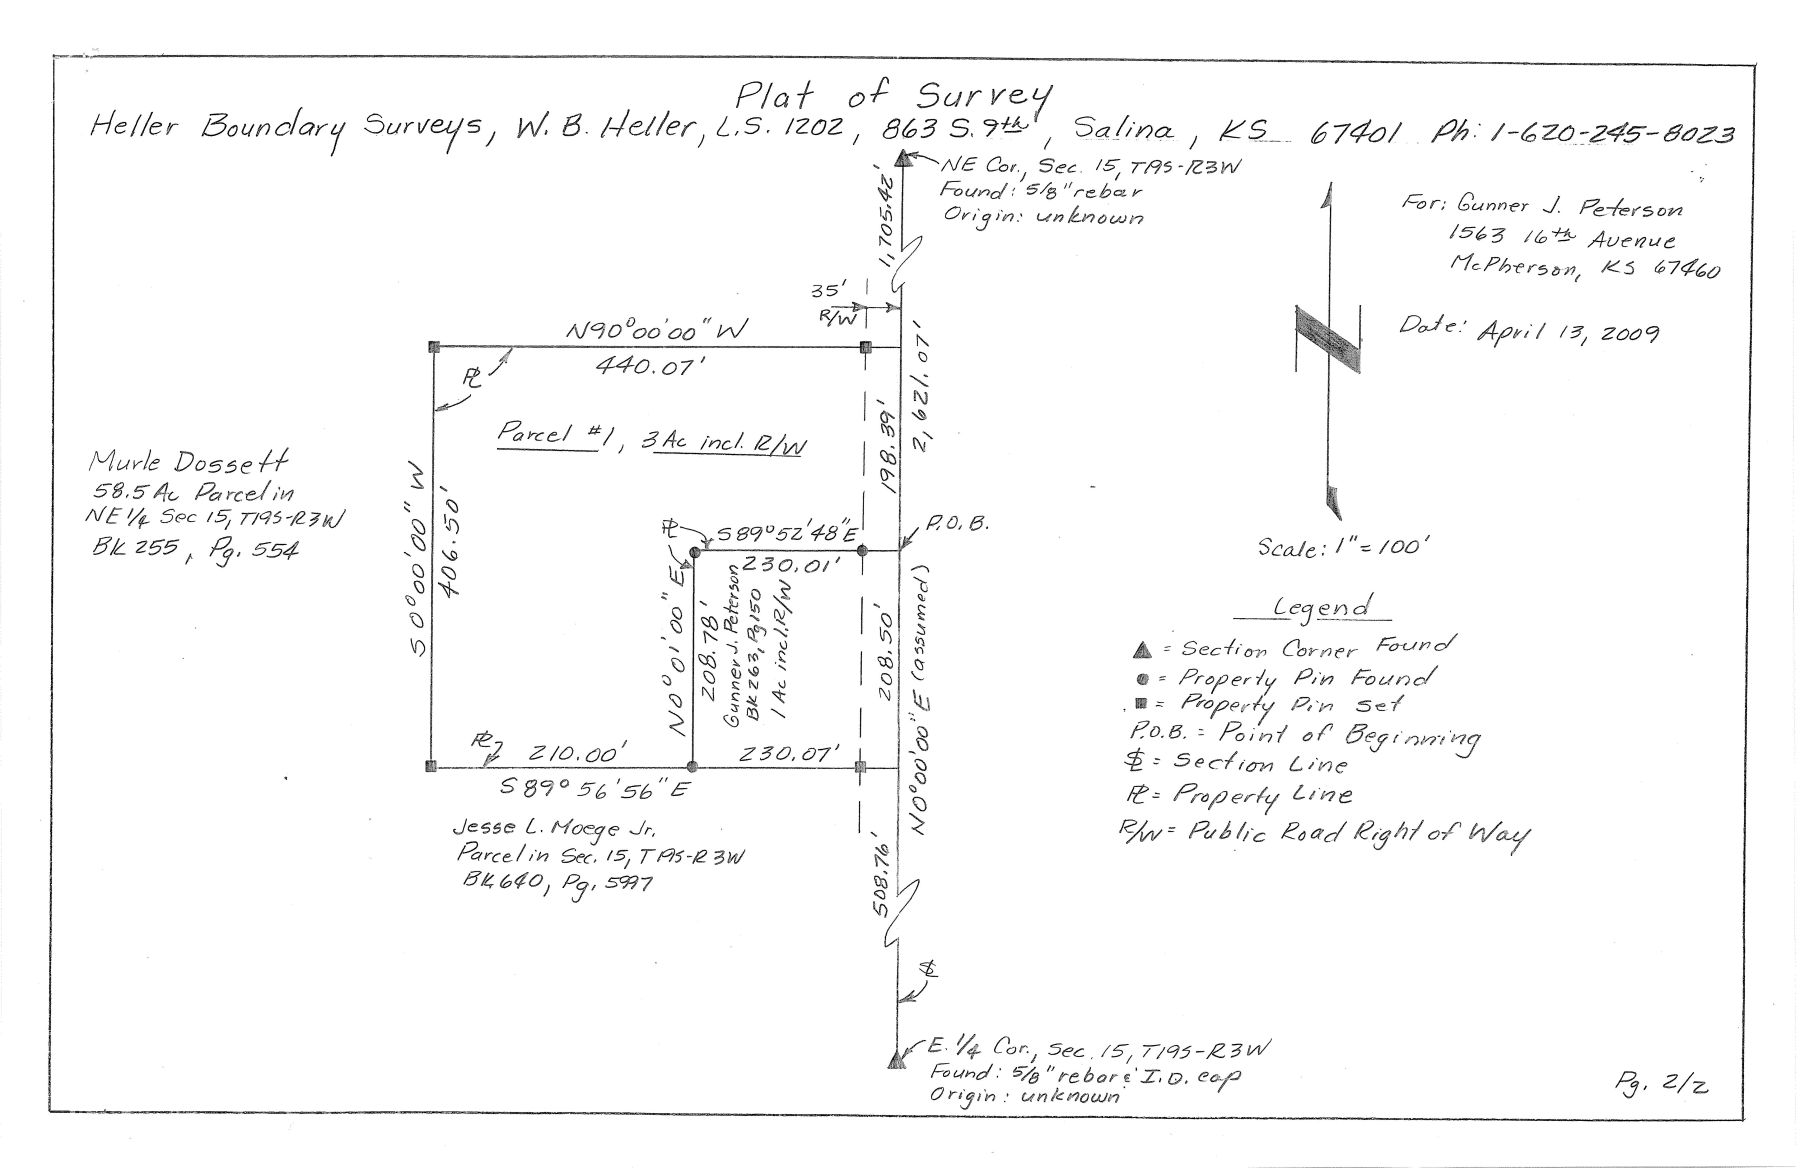 Plat of Survey
Heller Boundary Surveys, W. B. Heller, L.S. 1202, 863 S. 9th, Salina, KS 67401 Ph: 1-620-245-8023
NE Cor., Sec. 15, T19S-R3W
Found: 5/8" rebar
Origin: unknown
1,705.42'
For: Gunner J. Peterson
1563 16th Avenue
McPherson, KS 67460
Date: April 13, 2009
35'
R/W
N90°00'00" W
440.07'
PL
2,621.07'
198.39'
Parcel #1, 3 Ac incl. R/W
Murle Dossett
58.5 Ac Parcel in
NE 1/4 Sec 15, T19S-R3W
BK 255, Pg. 554
S0°00'00" W
406.50'
PL
S89°52'48"E
230.01'
P.O.B.
N0°01'00"E
208.78'
Gunner J. Peterson
BK 263, Pg 150
1 Ac incl. R/W
208.50'
N0°00'00"E (assumed)
Scale: 1" = 100'
Legend
▲ = Section Corner Found
● = Property Pin Found
■ = Property Pin Set
P.O.B. = Point of Beginning
SL = Section Line
PL = Property Line
R/W = Public Road Right of Way
PL
210.00'
230.07'
S89°56'56"E
Jesse L. Moege Jr.
Parcel in Sec. 15, T19S-R3W
BK 640, Pg. 5997
508.76'
SL
E. 1/4 Cor., Sec. 15, T19S-R3W
Found: 5/8" rebar & I.D. cap
Origin: unknown
Pg. 2/2